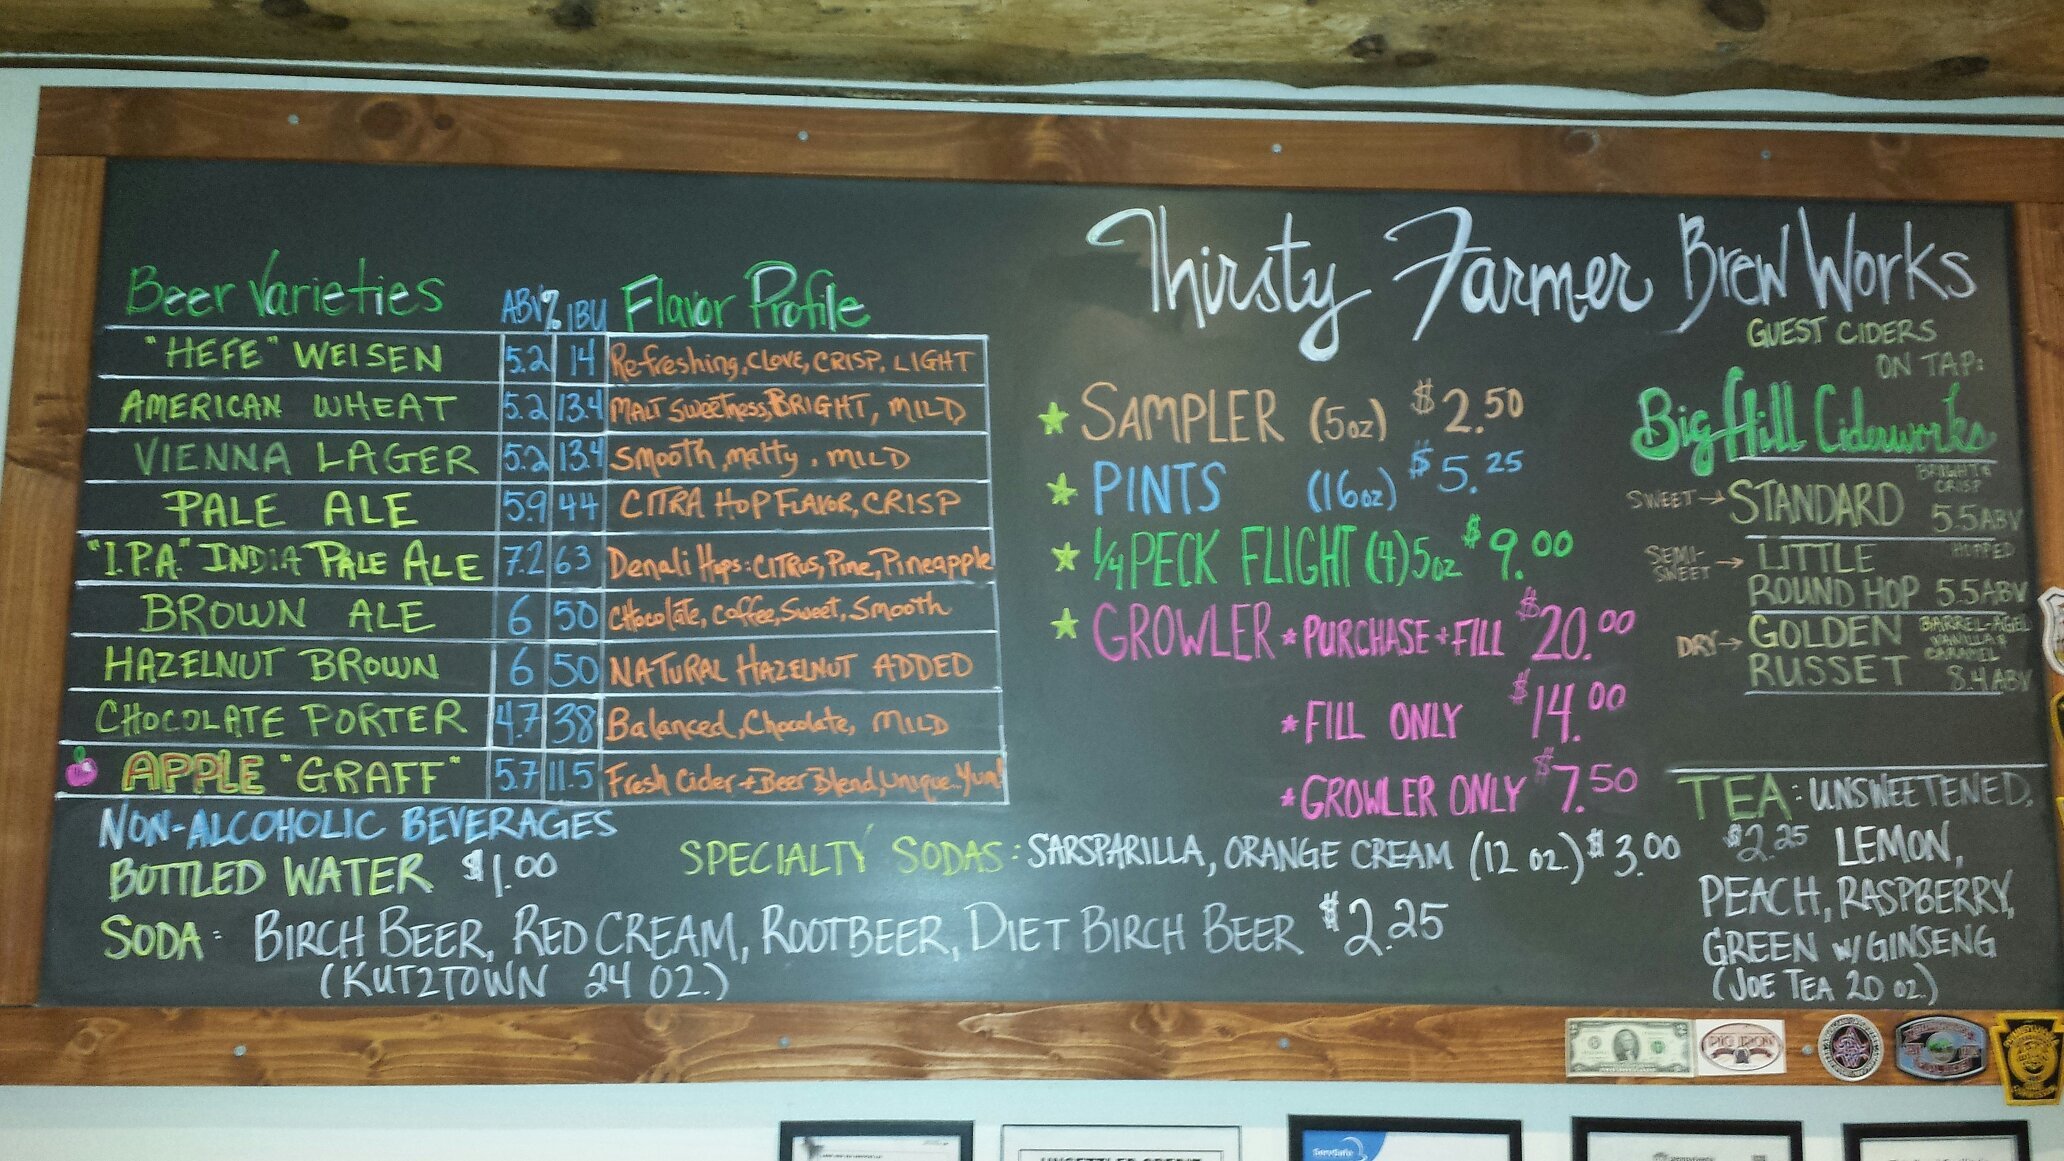 Thirsty Farmer Brew Works
Beer Varieties ABV% IBU Flavor Profile
"HEFE" WEISEN 5.2 14 Refreshing, CLOVE, CRISP, LIGHT
AMERICAN WHEAT 5.2 13.4 MALT SWEETNESS, BRIGHT, MILD
VIENNA LAGER 5.2 13.4 Smooth, malty, MILD
PALE ALE 5.9 44 CITRA HOP FLAVOR, CRISP
"I.P.A." INDIA PALE ALE 7.2 63 Denali Hops: CITRUS, Pine, Pineapple
BROWN ALE 6 50 Chocolate, Coffee, Sweet, Smooth
HAZELNUT BROWN 6 50 NATURAL HAZELNUT ADDED
CHOCOLATE PORTER 4.7 38 Balanced, Chocolate, MILD
APPLE "GRAFF" 5.7 11.5 Fresh Cider + Beer Blend, unique.. Yum!
SAMPLER (5oz) $2.50
PINTS (16oz) $5.25
1/4 PECK FLIGHT (4) 5oz $9.00
GROWLER * PURCHASE + FILL $20.00
* FILL ONLY $14.00
* GROWLER ONLY $7.50
GUEST CIDERS
ON TAP:
Big Hill Ciderworks
SWEET → STANDARD BRIGHT & CRISP 5.5 ABV
SEMI-SWEET → LITTLE HOPPED
ROUND HOP 5.5 ABV
DRY → GOLDEN BARREL-AGED VANILLA & CARAMEL
RUSSET 8.4 ABV
NON-ALCOHOLIC BEVERAGES
BOTTLED WATER $1.00
SPECIALTY SODAS: SARSPARILLA, ORANGE CREAM (12 oz.) $3.00
SODA: BIRCH BEER, RED CREAM, ROOTBEER, DIET BIRCH BEER $2.25
(KUTZTOWN 24 OZ.)
TEA: UNSWEETENED,
$2.25 LEMON,
PEACH, RASPBERRY,
GREEN w/ GINSENG
(JOE TEA 20 oz.)
PIG IRON
ServSafe